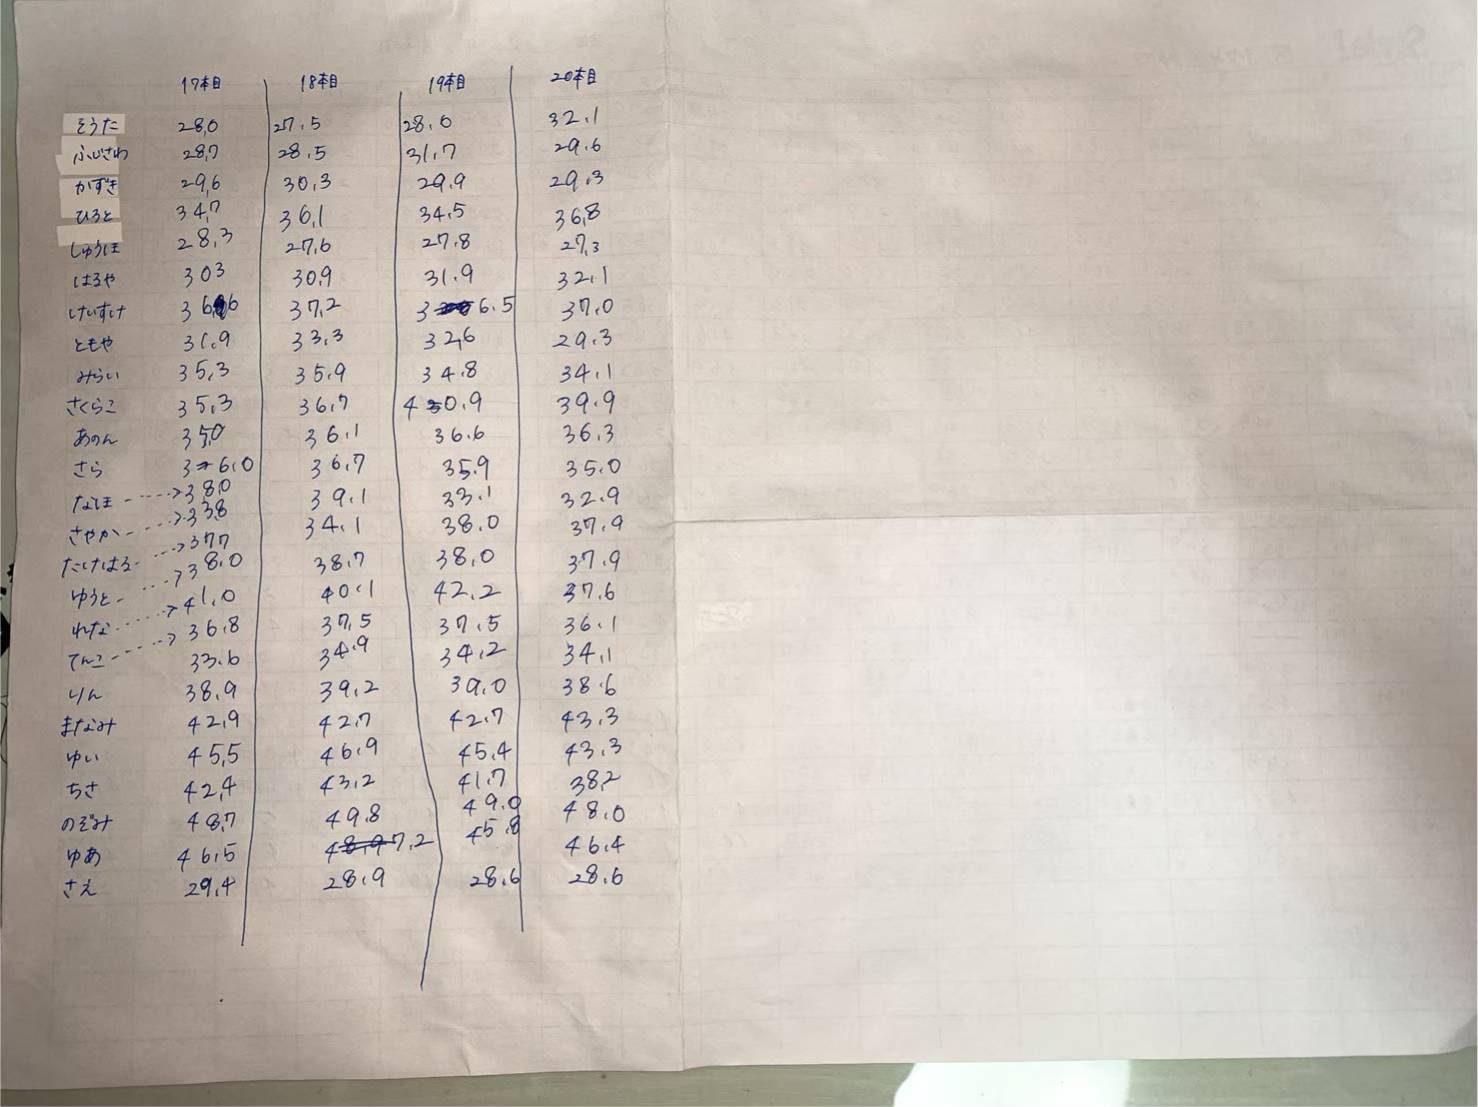 17本目 18本目 19本目 20本目
そうた 28,0 27.5 28.0 32.1
ふじさわ 28,7 28.5 31.7 29.6
かずき 29,6 30.3 29.9 29.3
ひろと 34,7 36,1 34.5 36,8
しゅうほ 28,3 27,6 27.8 27,3
はるや 303 30,9 31.9 32.1
けいすけ 36,6 37,2 36.5 37.0
ともや 31.9 33,3 32,6 29.3
みらい 35,3 35,9 34.8 34,1
さくらこ 35,3 36,7 40.9 39.9
あのん 35,0 36.1 36.6 36,3
さら 36,0 36,7 35,9 35,0
なほ ----> 38,0 39,1 33.1 32.9
さやか ----> 33,8 34.1 38.0 37.9
たけはる ----> 377 38,7 38,0 37.9
ゆうと ----> 38,0 40.1 42.2 37.6
れな ----> 41.0 37,5 37.5 36.1
てんこ ----> 36,8 34.9 34.2 34,1
33.6
りん 38,9 39,2 39,0 38.6
まなみ 42,9 42,7 42.7 43.3
ゆい 45,5 46,9 45,4 43,3
ちさ 42,4 43,2 41,7 38,2
のぞみ 48,7 49.8 49.0 48.0
ゆあ 46,5 47,2 45.8 46.4
さえ 29,4 28,9 28.6 28.6